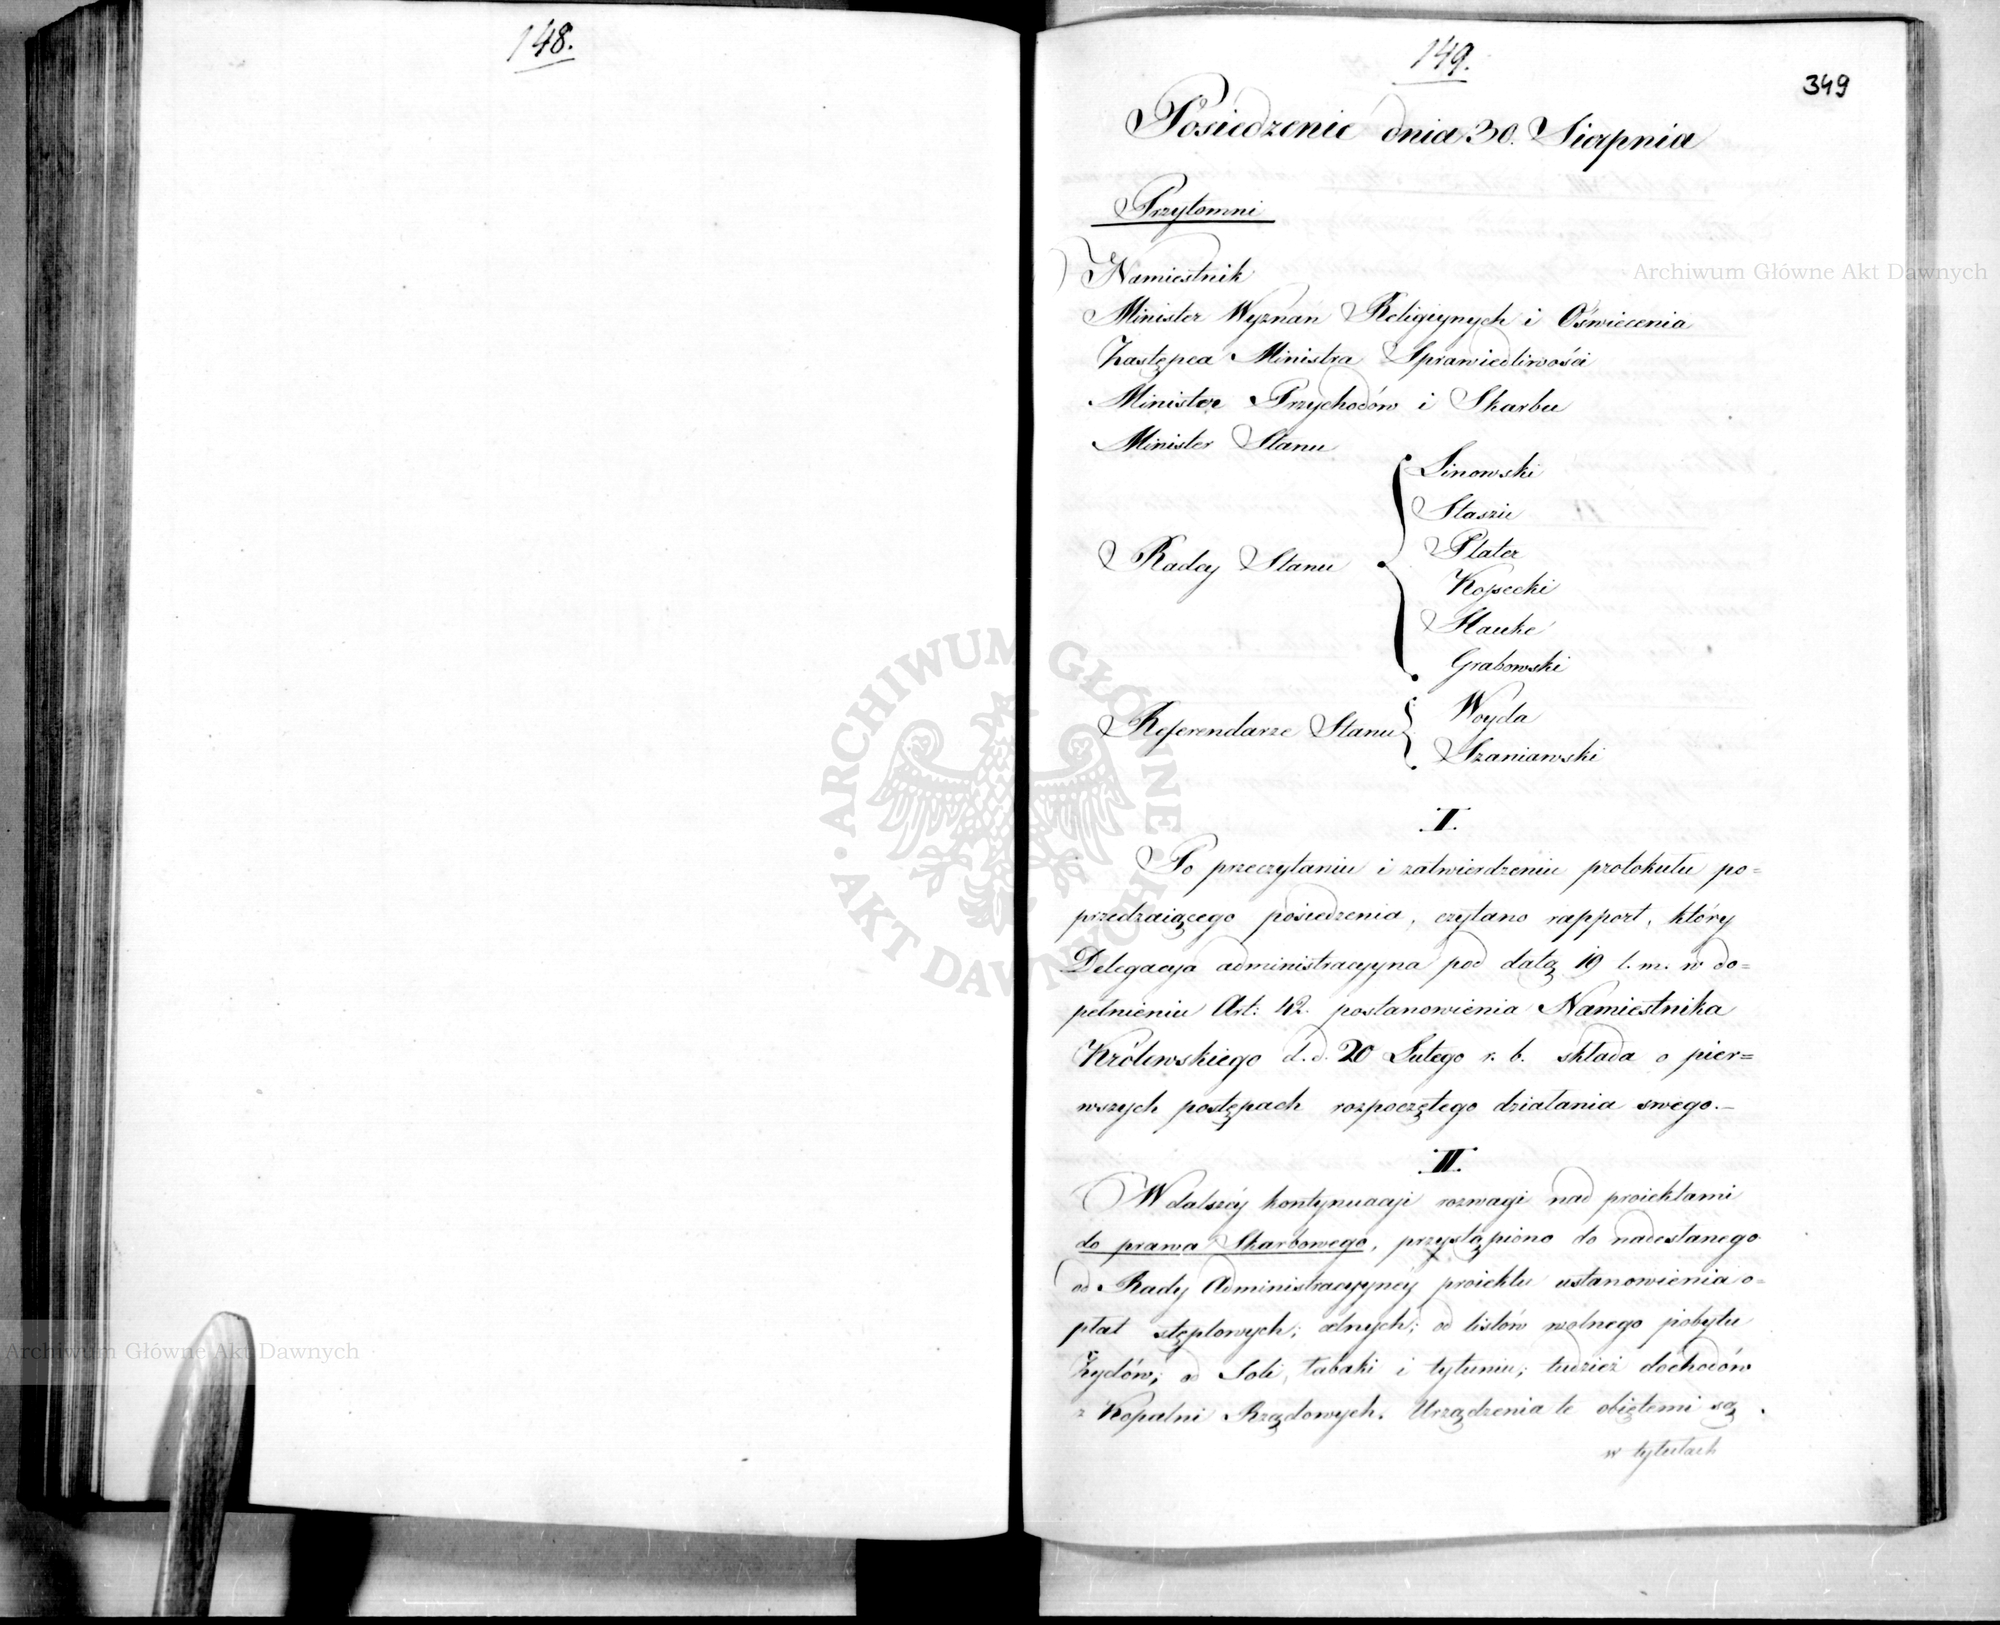 148.
149.
349
Posiedzenie dnia 30. Sierpnia
Przytomni
Namiestnik
Minister Wyznań Religiynych i Oświecenia
Zastępca Ministra Sprawiedliwości
Minister Przychodów i Skarbu
Minister Stanu
Radcy Stanu
Linowski
Staszic
Plater
Kossecki
Hauke
Grabowski
Referendarze Stanu
Woyda
Szaniawski
I.
Po przeczytaniu i zatwierdzeniu protokułu po=
przedzaiącego posiedzenia, czytano rapport, który
Delegacya administracyyna pod datą 19 t. m. w do=
pełnieniu Art: 42. postanowienia Namiestnika
Królewskiego d. d. 20 Lutego r. b. składa o pier=
wszych postępach rozpoczętego działania swego.—
II.
W dalszéy kontynuacyi rozwagi nad proiektami
do prawa Skarbowego, przystąpiono do nadesłanego
od Rady Administracyynéy proiektu ustanowienia o=
płat stęplowych; celnych; od listów wolnego pobytu
Żydów; od Soli, tabaki i tytuniu; tudzież dochodów
z Kopalni Rządowych. Urządzenia te obiętemi są
w tytułach
Archiwum Główne Akt Dawnych
Archiwum Główne Akt Dawnych
ARCHIWUM GŁÓWNE AKT DAWNYCH